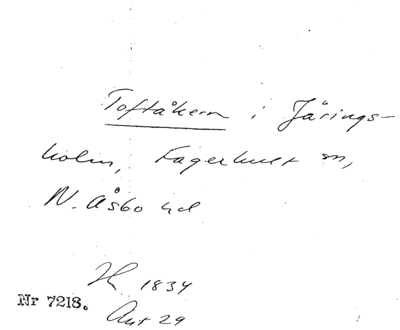 Toftåkern i Järings-
holm, Fagerhult sn,
N. Åsbo hd
1834
Nr 7218.
Akt 29